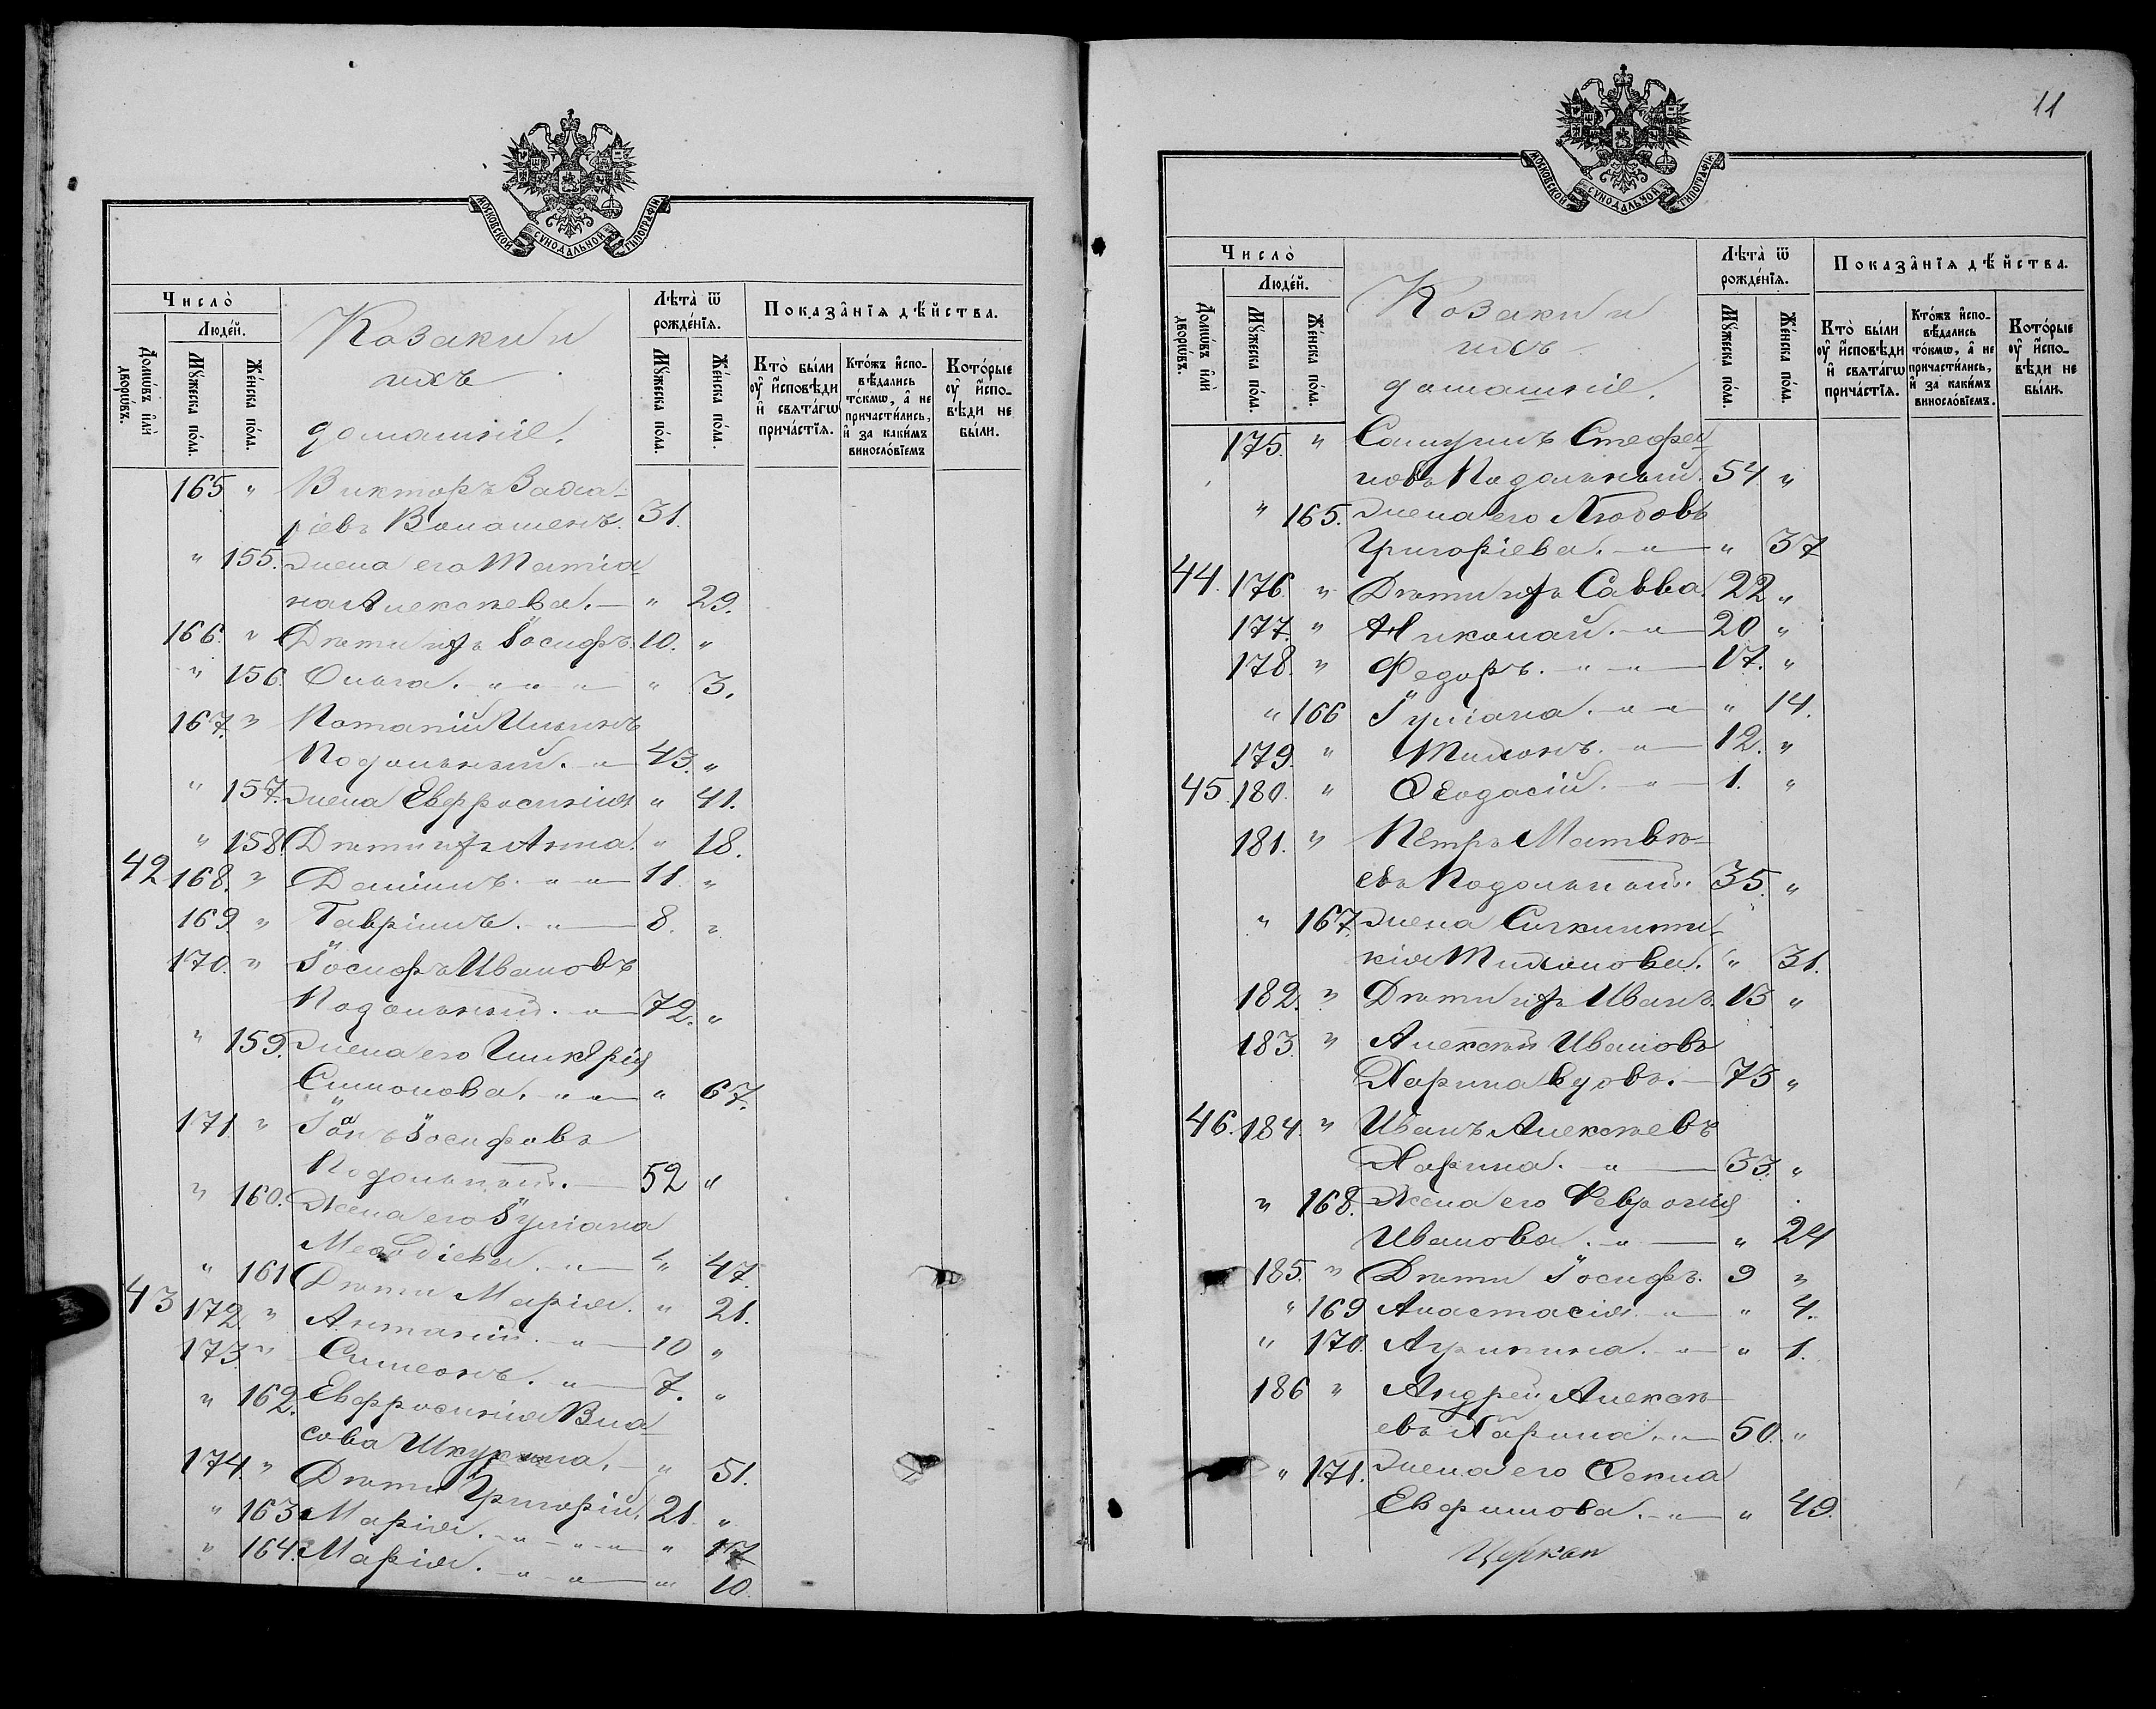 МОСКОВСКОЙ СУНОДАЛЬНОЙ ТѴПОГРАФІИ
Число̀
Люде́й.
Домѡ́въ и҆лѝ дворѡ́въ.
Мꙋ́жеска по́ла.
Же́нска по́ла.
Козаки и
ихъ
домашніе.
Лѣта̀ ѿ рожде́нїѧ.
Мꙋ́жеска по́ла.
Же́нска по́ла.
Показа̑нїѧ дѣ́йства.
Кто̀ бы́ли оу҆ и҆́сповѣди и҆ свѧта́гѡ прича́стїѧ.
Кто́жъ и҆сповѣ́дались то́кмѡ, а҆ не причасти́лись, и҆ за каки́мъ винослові́емъ
Кото́рые оу҆ и҆́сповѣди не бы́ли.
165 " Викторъ
ріевъ 31.
" 155. Жена его Татіа-
на Алексѣева. — " 29.
166. " Дѣти ихъ Іосифъ. 10. "
" 156. Ольга. " " " " 3.
167. " Потапій Ильинъ
Подольный. " 43. "
" 157. Жена Евфросинія " 41.
" 158. Дѣти ихъ Анна. " 18.
42 168. " Даніилъ. " " 11 "
169 " Гавріилъ. " 8. "
170. " Іосифъ Ивановъ
Подольный. " 72. "
" 159. Жена его Гликерія
Симонова. " " " 67.
171 " Іоанъ Іосифовъ
Подольный. — 52 "
" 160. Жена его Іуліана
Меѳодіева. " " 47.
" 161 Дѣти Марія. " 21.
43 172. " Антоній. " 10 "
173. " Симеонъ. " 7. "
" 162. Евфросинія Вла-
сова — " 51.
174. " Дѣти Григорій. 21 "
" 163 Марія. " " " " 17
" 164. Марія. " " " 10
11
МОСКОВСКОЙ СУНОДАЛЬНОЙ ТѴПОГРАФІИ
Число̀
Люде́й.
Домѡ́въ и҆лѝ дворѡ́въ.
Мꙋ́жеска по́ла.
Же́нска по́ла.
Козаки и
ихъ
домашніе.
Лѣта̀ ѿ рожде́нїѧ.
Мꙋ́жеска по́ла.
Же́нска по́ла.
Показа̑нїѧ дѣ́йства.
Кто̀ бы́ли оу҆ и҆́сповѣди и҆ свѧта́гѡ прича́стїѧ.
Кто́жъ и҆сповѣ́дались то́кмѡ, а҆ не причасти́лись, и҆ за каки́мъ винослові́емъ.
Кото́рые оу҆ и҆́сповѣди не бы́ли.
175. " Самуилъ Стефа-
новъ Подольный. 54 "
" 165. Жена его Любовь
Григоріева. " " 37
44 176. " Дѣти ихъ Савва. 22 "
177. " Николай. " 20 "
178. " Федоръ. " " 17. "
" 166 Іуліана. " " " 14.
179. " Тихонъ. " 12. "
45. 180. " Ѳеодосій. " 1. "
181. " Петръ Матвѣ-
евъ Подольный. 35. "
" 167. Жена Сигклити-
кія Тихонова. " 31.
182. " Дѣти ихъ Иванъ. 13 "
183. " Алексѣй Ивановъ
Харина вдовъ. — 75 "
46. 184. " Иванъ Алексѣевъ
Харина. " 33. "
" 168. Жена его Февронія
Иванова. " " 24
185. " Дѣти Іосифъ. 9 "
" 169 Анастасія. " " 4.
" 170. Агрипина. " " 1.
186 " Андрей Алексѣ-
евъ Харина. " 50. "
" 171. Жена его Ѳекла
Евфимова. " " 49.